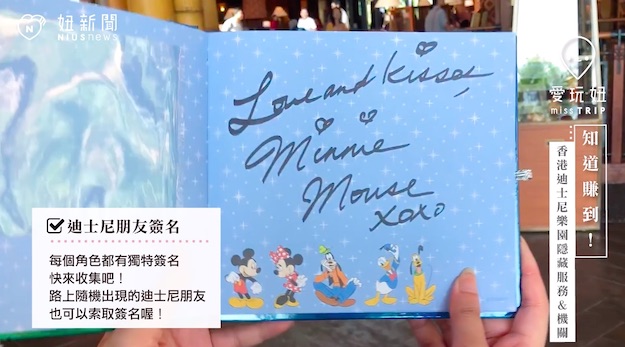 妞新聞
NIUSnews
愛玩妞
missTRIP
知道賺到！
香港迪士尼樂園隱藏服務&機關
Love and Kisses,
Minnie
Mouse
xoxo
迪士尼朋友簽名
每個角色都有獨特簽名
快來收集吧！
路上隨機出現的迪士尼朋友
也可以索取簽名喔！